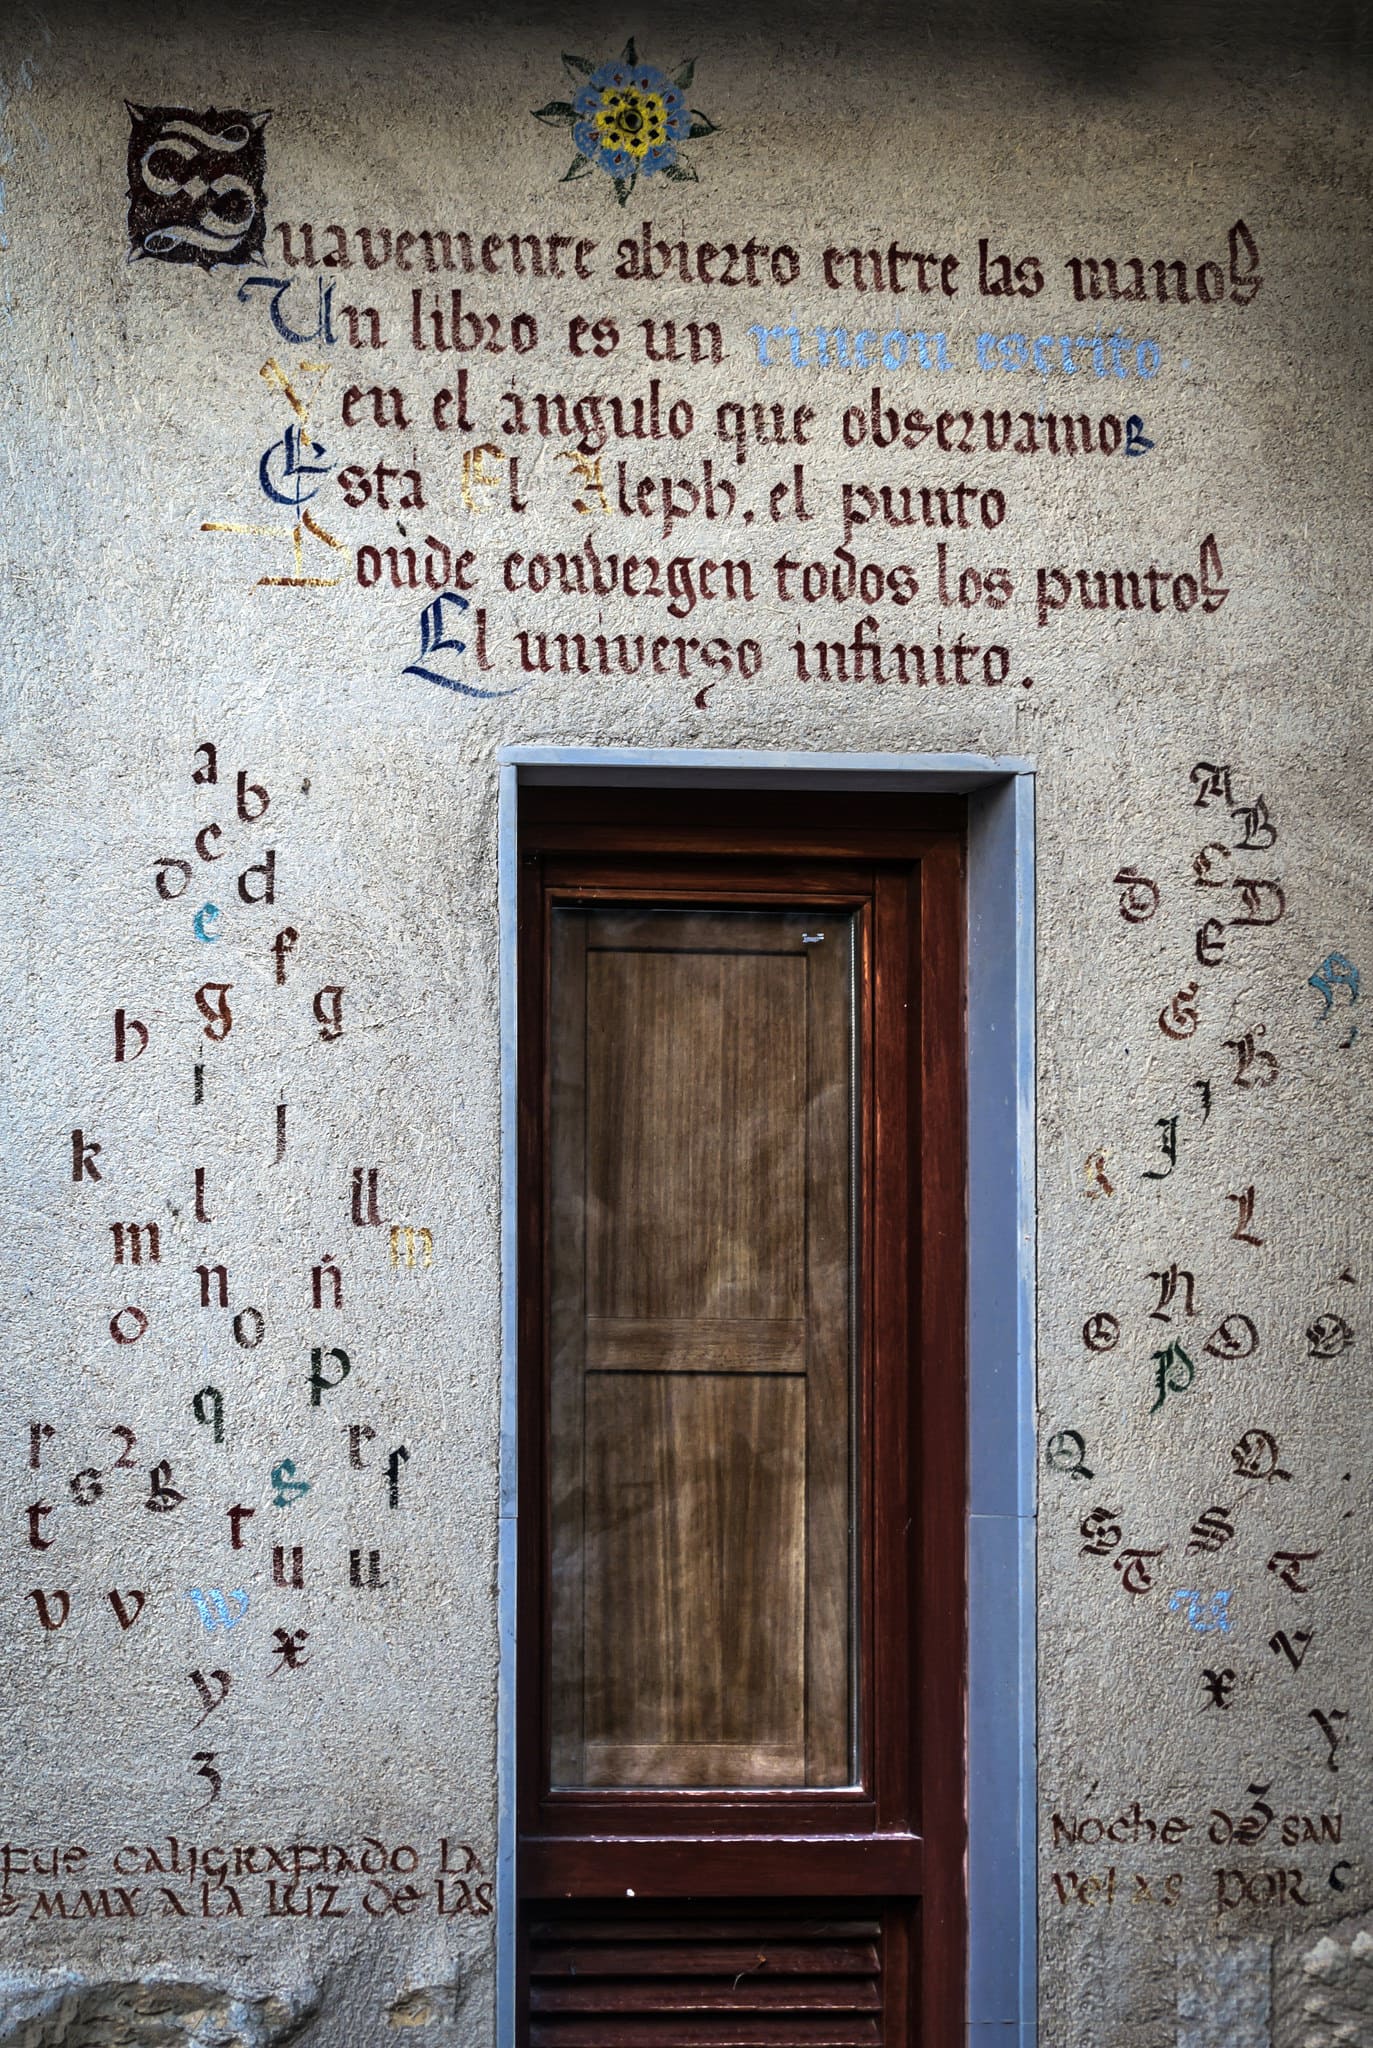 Suavemente abierto entre las manos
Un libro es un rincón escrito
Y en el ángulo que observamos
Está El Aleph, el punto
Donde convergen todos los puntos
El universo infinito.
a
b
c
d d
e
f
g g
h
i
j
k
l
ll
m m
n ñ
o o
p
q
r r r
s s s s
t t
u u
v v w
x
y
z
A
B
C
D D
E
G
H
I
J
L
N
O O O
P
Q Q
S S
T T
U
V
X
Y
Z
FUE CALIGRAFIADO LA NOCHE DE SAN
E MMX A LA LUZ DE LAS VELAS POR C